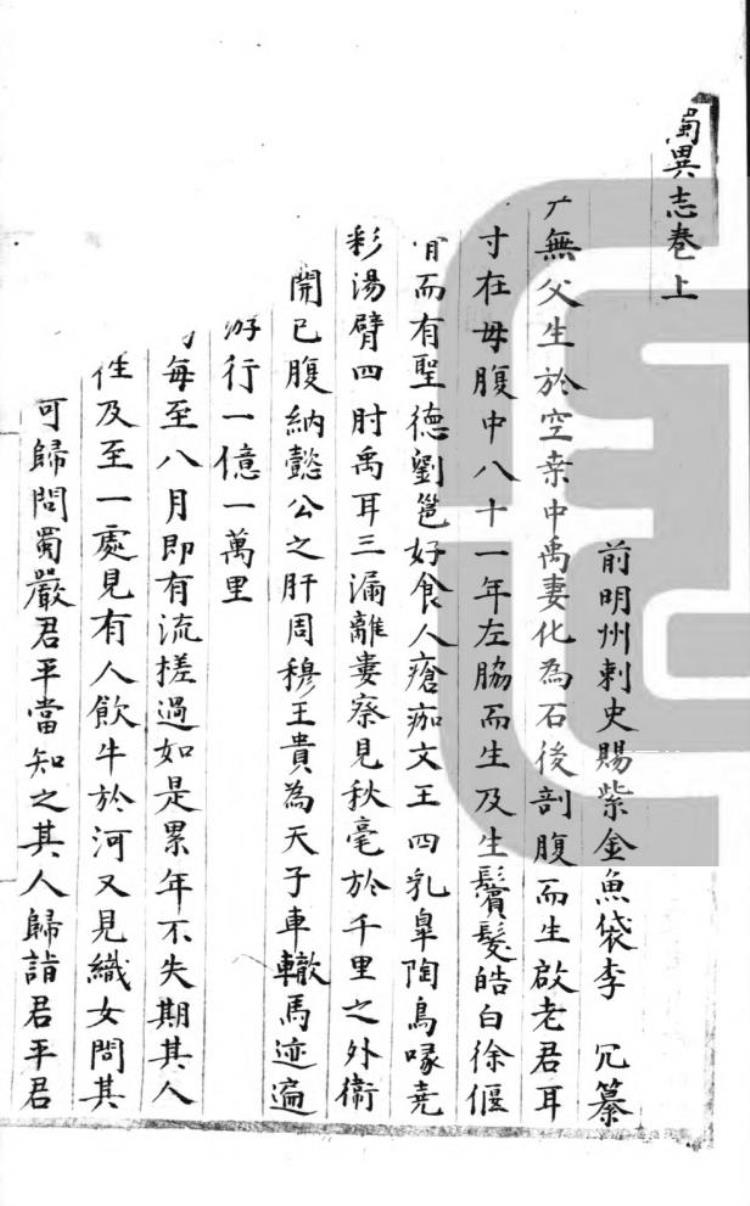 異志卷上
前明州刺史賜紫金魚袋李 冗纂
無父生於空桒中禹妻化為石後剖腹而生啟老君耳
寸在母腹中八十一年左脇而生及生鬚髮皓白徐偃
而有聖德劉邕好食人瘡痂文王四乳臯陶鳥喙堯
彩湯臂四肘禹耳三漏離婁察見秋毫於千里之外衛
開已腹納懿公之肝周穆王貴為天子車轍馬迹遍
游行一億一萬里
每至八月即有流槎過如是累年不失期其人
及至一處見有人飲牛於河又見織女問其
可歸問蜀嚴君平當知之其人歸詣君平君